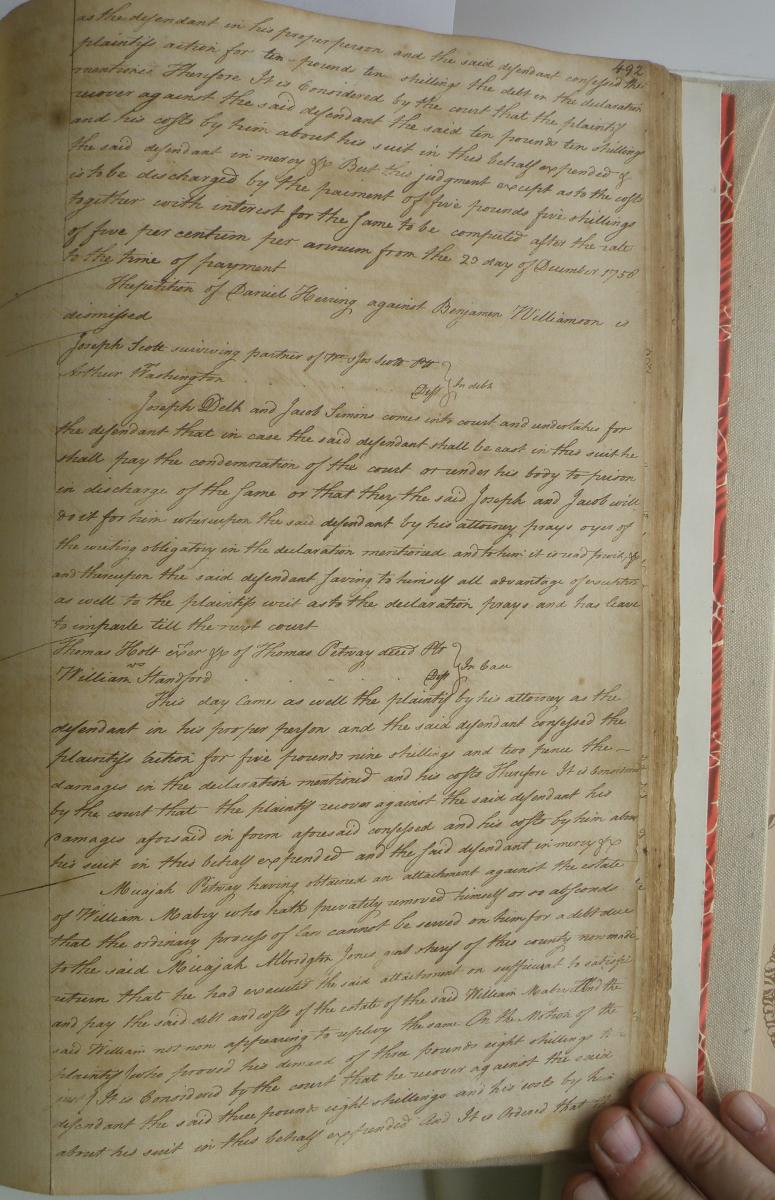 492
as the defendant in his proper person and the said defendant confessed the
plaintifs action for ten pounds ten shillings the debt in the declaration
mentioned Therefore It is Considered by the court that the plaintif
recover against the said defendant the said ten pounds ten shillings
and his costs by him about his suit in this behalf expended &
the said defendant in mercy &c But this judgment except as to the costs
is to be discharged by the paiment of five pounds five shillings
together with interest for the same to be computed after the rate
of five per centum per annum from the day of December 1756
to the time of payment
The petition of Daniel Herring against Benjamin Williamson is
dismissed
Joseph Scott surviving partner of Jos Scott Plt
Arthur Washington Deft } In debt
Joseph Delk and Jacob Simins comes into court and undertakes for
the defendant that in case the said defendant shall be cast in this suit he
shall pay the condemnation of the court or render his body to prison
in discharge of the same or that they the said Joseph and Jacob will
do it for him whereupon the said defendant by his attorney prays oyer of
the writing obligatory in the declaration mentioned and to him it is read &c
and thereupon the said defendant saving to himself all advantage of exception
as well to the plaintifs writ as to the declaration prays and has leave
to imparle till the next court
Thomas Holt exer &c of Thomas Petway decd Plt
vs
William Standford Deft } In Case
This day came as well the plaintif by his attorney as the
defendant in his proper person and the said defendant confessed the
plaintifs action for five pounds nine shillings and two pence the
damages in the declaration mentioned and his costs Therefore It is Considered
by the court that the plaintif recover against the said defendant his
damages aforesaid in form aforesaid confessed and his costs by him about
his suit in this behalf expended and the said defendant in mercy &c
Micajah Petway having obtained an attachment against the estate
of William Mabry who hath privately removed himself or so absconds
that the ordinary process of Law cannot be served on him for a debt due
to the said Micajah Albridgton Jones gent sherif of this county now made
return that he had executed the said attachment on sufficient to satisfie
and pay the said debt and costs of the estate of the said William Mabry And the
said William not now appearing to replevy the same On the Motion of the
plaintif (who proved his demand of three pounds eight shillings to
just) It is Considered by the court that he recover against the said
defendant the said three pounds eight shillings and his costs by him
about his suit in this behalf expended And It is Ordered that